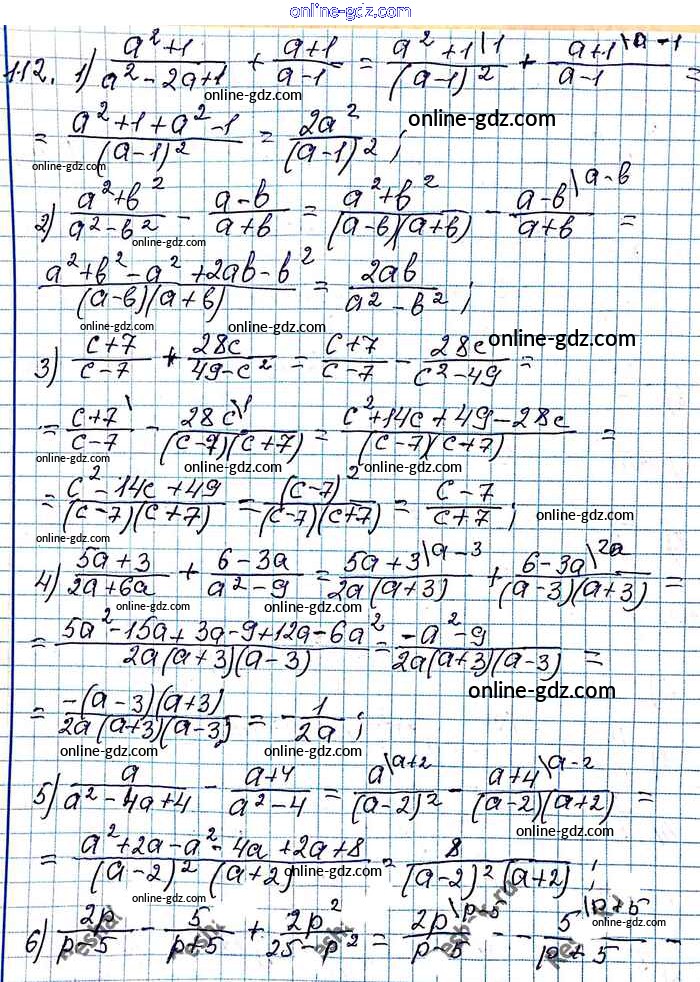 online-gdz.com
112. 1) (a²+1)/(a²-2a+1) + (a+1)/(a-1) = (a²+1\1)/((a-1)²) + (a+1\a-1)/(a-1) =
online-gdz.com
online-gdz.com
= (a²+1+a²-1)/((a-1)²) = 2a²/((a-1)²);
online-gdz.com
online-gdz.com
2) (a²+b²)/(a²-b²) - (a-b)/(a+b) = (a²+b²)/((a-b)(a+b)) - (a-b\a-b)/(a+b) =
online-gdz.com
online-gdz.com
(a²+b²-a²+2ab-b²)/((a-b)(a+b)) = 2ab/(a²-b²);
online-gdz.com
online-gdz.com
online-gdz.com
3) (c+7)/(c-7) + 28c/(49-c²) = (c+7)/(c-7) - 28c/(c²-49) =
online-gdz.com
online-gdz.com
= (c+7\)/(c-7) - (28c\1)/((c-7)(c+7)) = (c²+14c+49-28c)/((c-7)(c+7)) =
online-gdz.com
online-gdz.com
online-gdz.com
= (c²-14c+49)/((c-7)(c+7)) = (c-7)²/((c-7)(c+7)) = (c-7)/(c+7);
online-gdz.com
online-gdz.com
online-gdz.com
4) (5a+3)/(2a+6a) + (6-3a)/(a²-9) = (5a+3\a-3)/(2a(a+3)) + (6-3a\2a)/((a-3)(a+3)) =
online-gdz.com
online-gdz.com
online-gdz.com
= (5a²-15a+3a-9+12a-6a²)/(2a(a+3)(a-3)) = (-a²-9)/(2a(a+3)(a-3)) =
online-gdz.com
= (-(a-3)(a+3))/(2a(a+3)(a-3)) = -1/(2a);
online-gdz.com
online-gdz.com
online-gdz.com
5) a/(a²-4a+4) - (a+4)/(a²-4) = (a\a+2)/((a-2)²) - (a+4\a-2)/((a-2)(a+2)) =
online-gdz.com
online-gdz.com
= (a²+2a-a²-4a+2a+8)/((a-2)²(a+2)) = 8/((a-2)²(a+2));
online-gdz.com
online-gdz.com
6) 2p/(p-5) - 5/(p+5) + 2p²/(25-p²) = (2p\p-5)/(p-5) - - (5\p+5)/(p+5) -